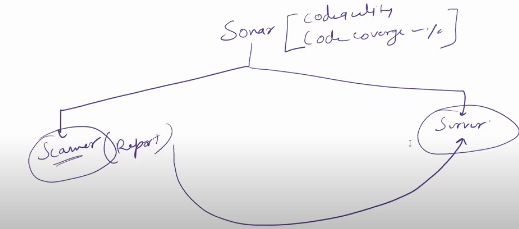 Sonar [codequlity
Code coverge - %]
Scanner (Report)
Server